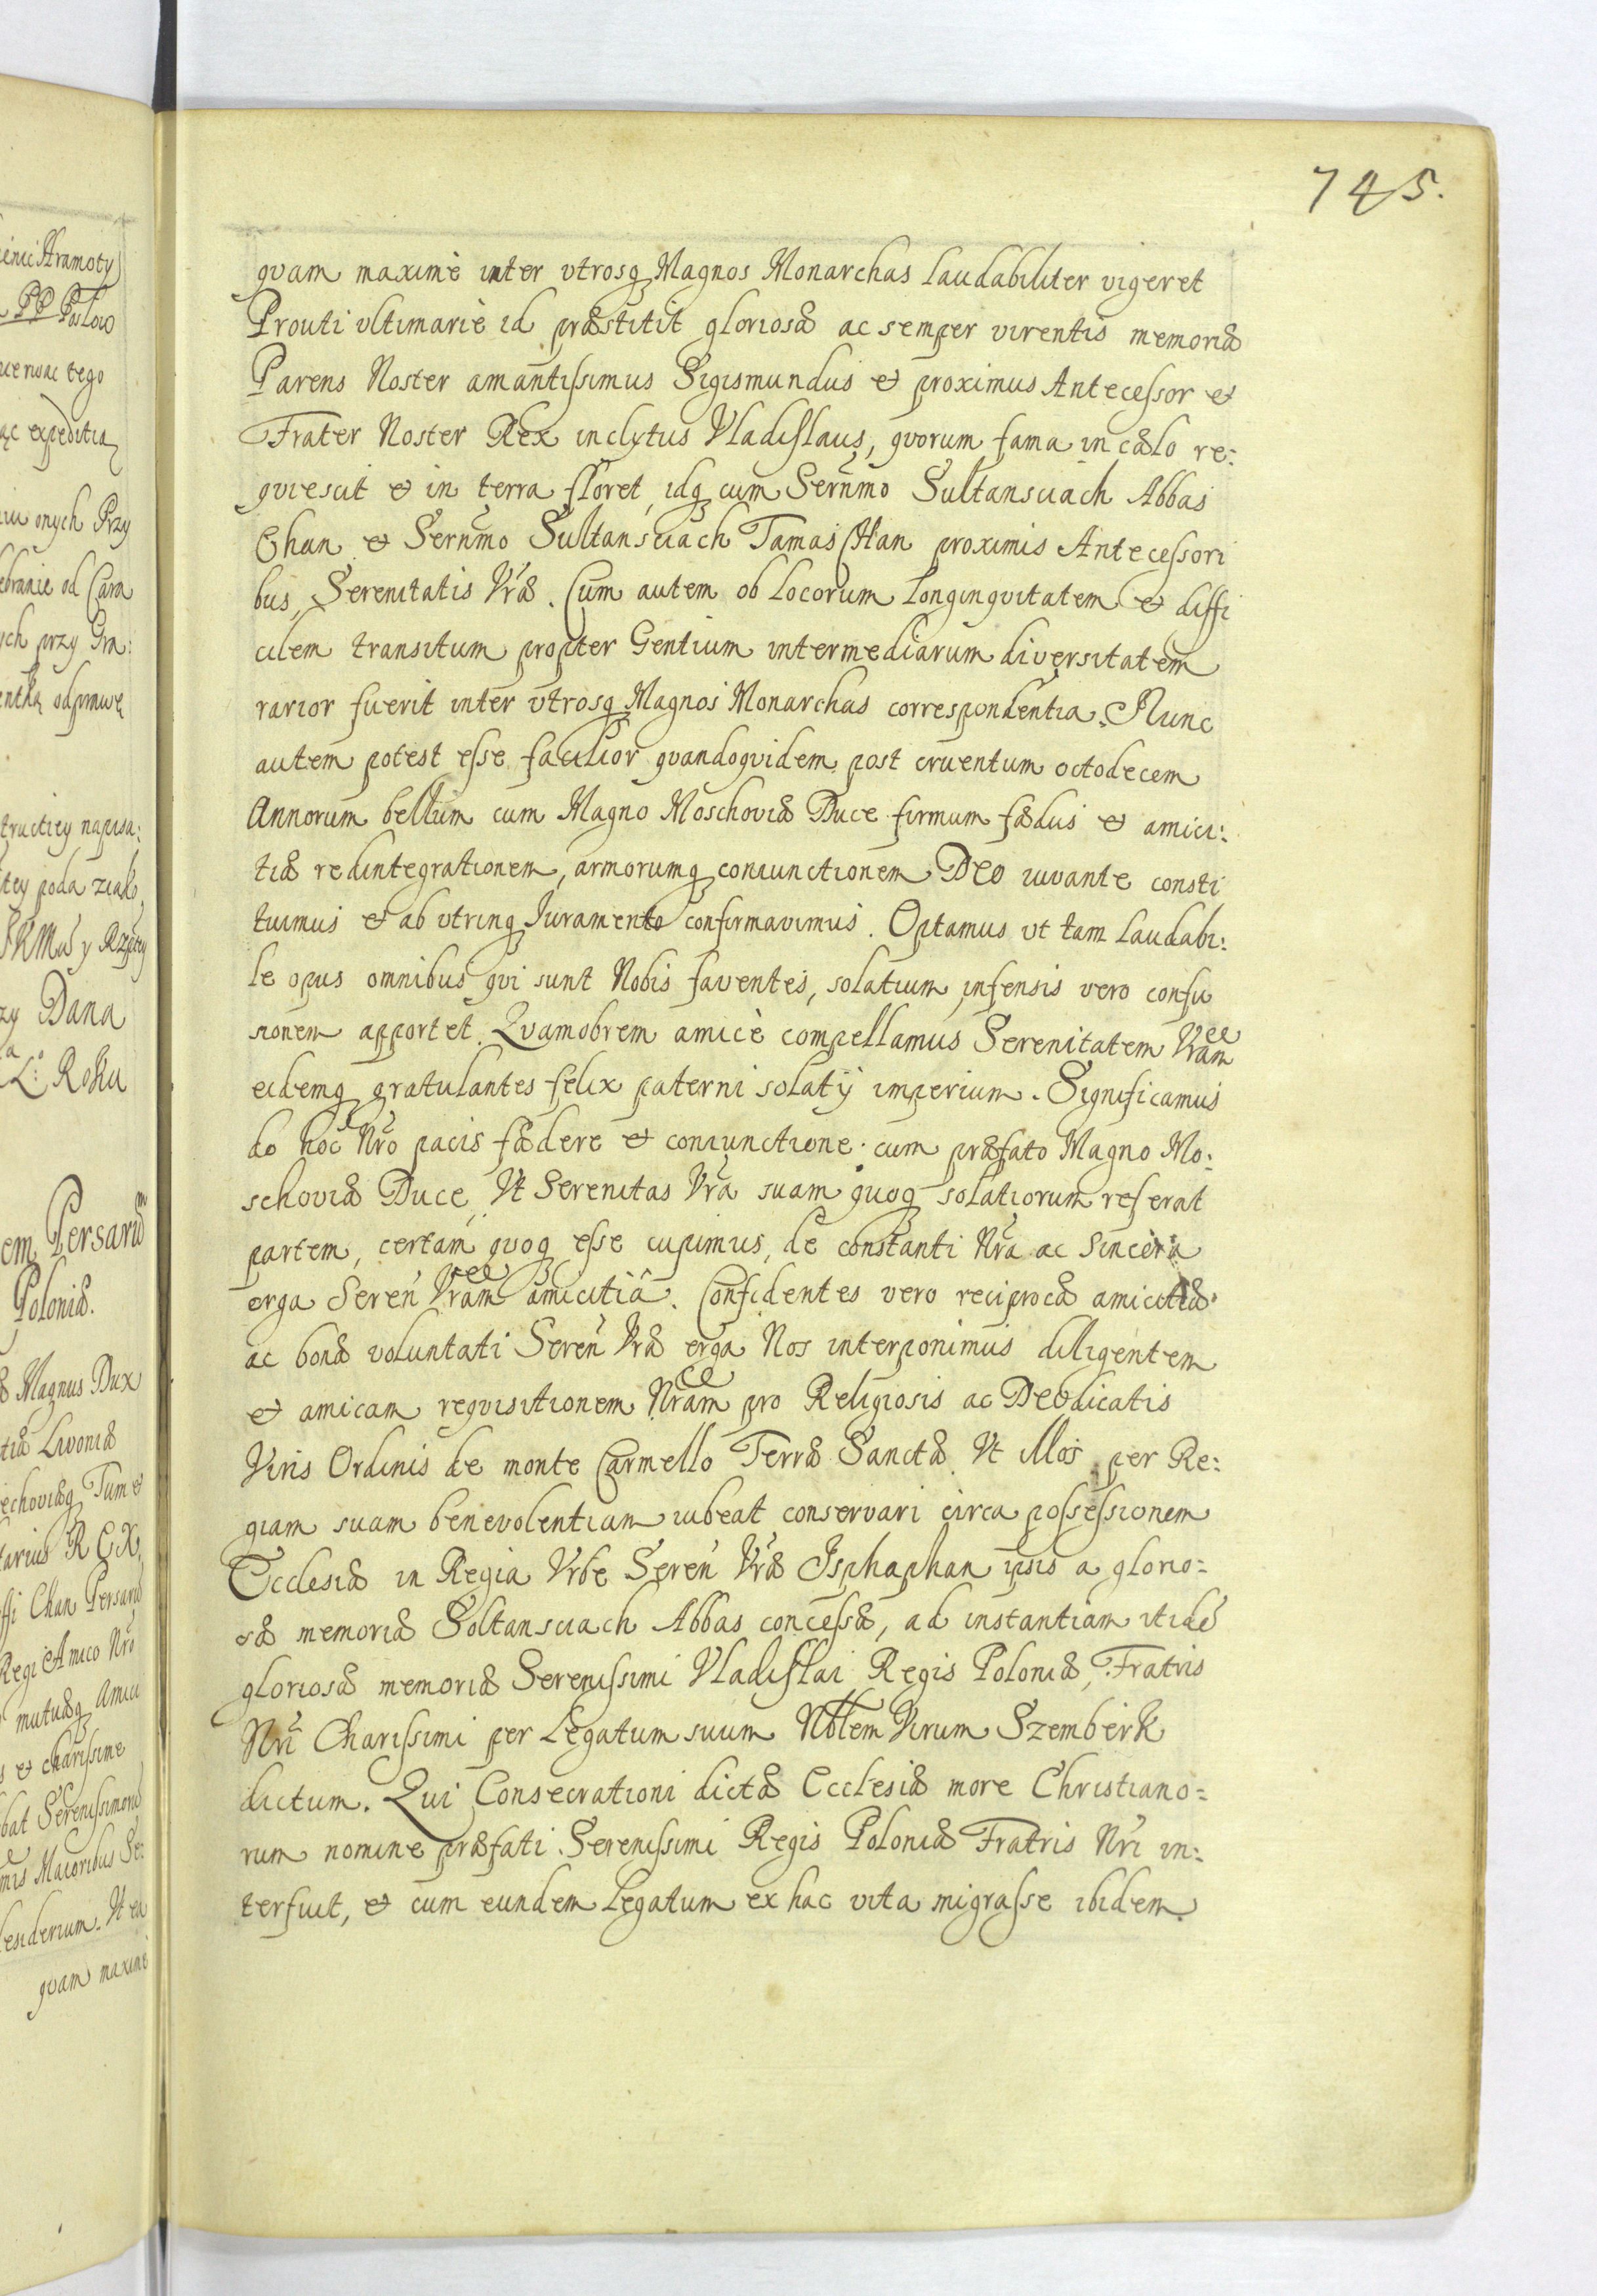 745.
quam maximè inter vtrosq Magnos Monarchas laudabiliter vigeret
Prouti vltimariè id præstitit gloriosæ ac semper virentis memoriæ
Parens Noster amantissimus Sigismundus & proximus Antecessor &
Frater Noster Rex inclytus Vladislaus, quorum fama in cælo re:
quiescit & in terra floret, idq cum Sernmo Sultansciach Abbas
Chan & Sernmo Sultansciach Tamas Han proximis Antecessori
bus Serenitatis Vræ. Cum autem ob locorum longinquitatem & diffi
cilem transitum propter Gentium intermediarum diversitatem
rarior fuerit inter vtrosq Magnos Monarchas correspondentia. Nunc
autem potest esse facilior quandoquidem post cruentum octodecem
Annorum bellum cum Magno Moschoviæ Duce firmum fædus & amici:
tiæ redintegrationem, armorumq coniunctionem Deo iuvante consti
tuimus & ab vtrinq Iuramento confirmavimus. Optamus vt tam laudabi:
le opus omnibus qui sunt Nobis faventes, solatium infensis vero confu
sionem apportet. Quamobrem amicè compellamus Serenitatem Vram
eidemq gratulantes felix paterni solatij imperium. Significamus
do hoc Nro pacis fædere & coniunctione cum præfato Magno Mo:
schoviæ Duce, Vt Serenitas Vra suam quoq solatiorum referat
partem, certam quoq esse cupimus, de constanti Nra ac sincera
erga Seren Vram amicitiâ. Confidentes vero reciprocæ amicitiæ
ac bonæ voluntati Seren Vræ erga Nos interponimus diligentem
& amicam requisitionem Nram pro Religiosis ac Deodicatis
Viris Ordinis de monte Carmello Terræ Sanctæ. Vt illos per Re:
giam suam benevolentiam iubeat conservari circa possessionem
Ecclesiæ in Regia Vrbe Seren Vræ Isphaphan ipsis a glorio=
sæ memoriæ Soltansciach Abbas concessæ, ad instantiam itidẽ
gloriosæ memoriæ Serenissimi Vladislai Regis Poloniæ, Fratris
Nri Charissimi per Legatum suum Nblem Virum Szemberk
dictum. Qui Consecrationi dictæ Ecclesiæ more Christiano=
rum nomine præfati Serenissimi Regis Poloniæ Fratris Nri in:
terfuit, & cum eundem Legatum ex hac vita migrasse ibidem